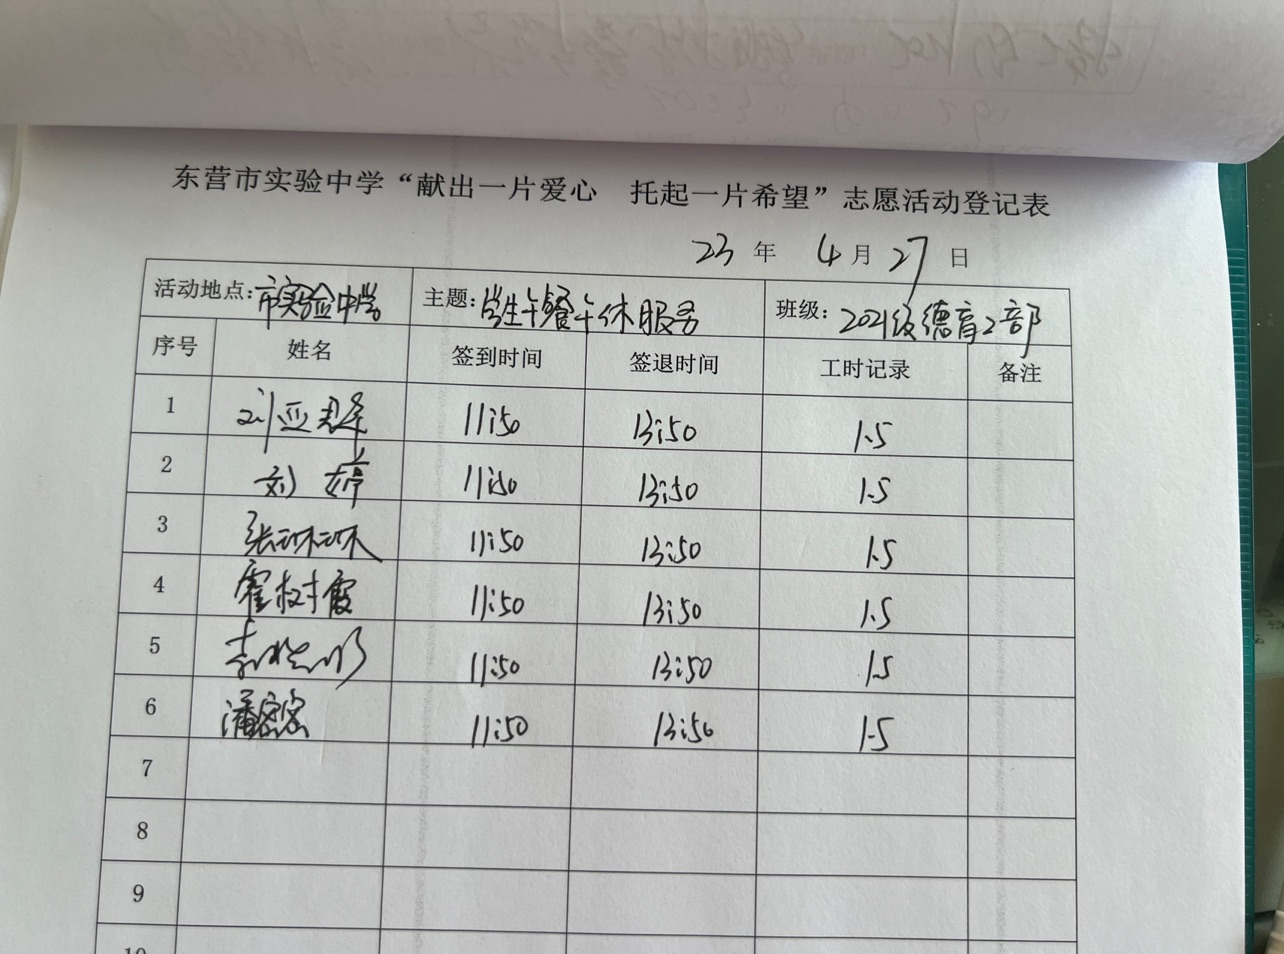 东营市实验中学“献出一片爱心 托起一片希望”志愿活动登记表
23 年 4 月 27 日
活动地点:市实验中学 主题:学生午餐午休服务 班级:2021级德育2部
序号 姓名 签到时间 签退时间 工时记录 备注
1 刘亚 11:50 13:50 1.5
2 刘婷 11:50 13:50 1.5
3 张 11:50 13:50 1.5
4 霍树霞 11:50 13:50 1.5
5 11:50 13:50 1.5
6 潘密密 11:50 13:50 1.5
7
8
9
10